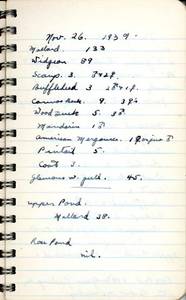 Nov. 26. 1939.
Mallard. 133
Widgeon 89
Scaup. 3. ♂+2♀.
Bufflehead 3 2♂+1♀.
Canvasback. 9.
Wood Duck 5. 3♂
Mandarin 1♂
American Merganser. 1♀
Pintail 5.
Coot 3.
Glaucous w. gull. 45.
Upper Pond.
Mallard 38.
Rose Pond
nil.